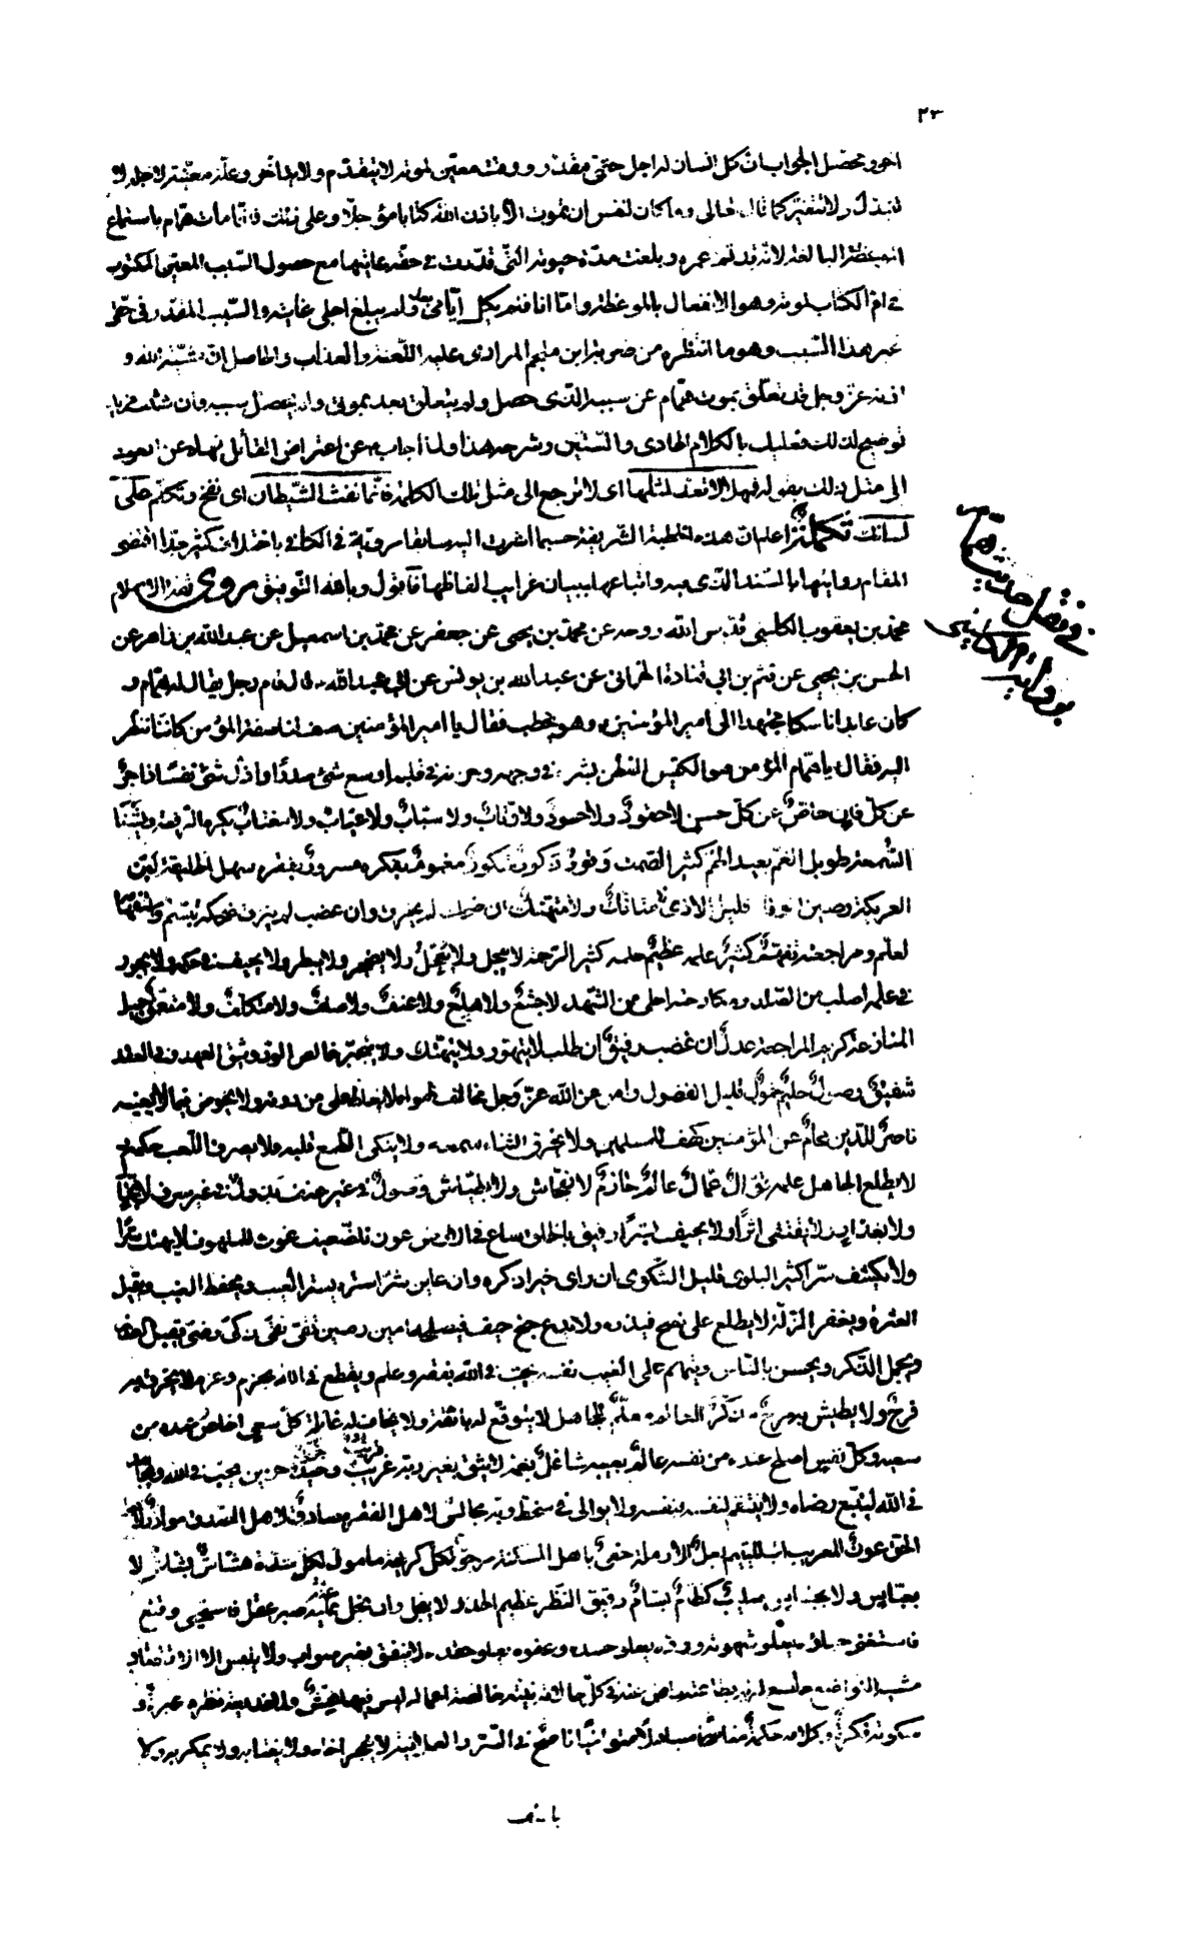 ٢٣
اخر ومحصل الجواب ان كل انسان له اجل حتمى مقدر ووقت معين لموته لا يتقدم ولا يتاخر وعلة معينة لاجله لا
تتبدل ولا تتغير كما قال تعالى وما كان لنفس ان تموت الا باذن الله كتابا مؤجلا وعلى ذلك فانما مات همام باستماع
الموعظة البالغة لانه قد تم عمره وبلغت مدة حيوته التى قدرت فى حقه غايتها مع حصول السبب المعين المكتوب
فى ام الكتاب لموته وهو الانفعال بالموعظة واما انا فلم يكمل ايامى بعد ولم يبلغ اجلى غايته والسبب المقدر فى حقى
غير هذا السبب وهو ما انتظره من ضربة ابن ملجم المرادى عليه اللعنة والعذاب والحاصل ان مشية الله و
اذنه عز وجل قد تعلق بموت همام عن سببه الذى حصل ولم يتعلق بعد بموتى ولم يحصل سببه وان شئت مزيد
توضيح لذلك فعليك بالكلام الحادى والستين وشرحه هذا ولما اجاب عن اعتراض القائل نهاه عن العود
الى مثل ذلك بقوله فمهلا لا تعد لمثلها اى لا ترجع الى مثل تلك الكلمة فانما نفث الشيطان اى نفخ وتكلم على
لسانك تكملة اعلم ان هذه الخطبة الشريفة حسبما اشرت اليه سابقا مروية فى الكافى باختلاف كثير جدا اقتضى
المقام روايتها بالسند الذى فيه واتباعها ببيان غرايب الفاظها فاقول وبالله التوفيق روى ثقة الاسلام
محمد بن يعقوب الكلينى قدس الله روحه عن محمد بن جعفر عن محمد بن اسمعيل عن عبد الله بن داهر عن
الحسن بن يحيى عن قثم بن ابى قتادة الحرانى عن عبد الله بن يونس عن ابى عبد الله قال قام رجل يقال له همام و
كان عابدا ناسكا مجتهدا الى امير المؤمنين وهو يخطب فقال يا امير المؤمنين صف لنا صفة المؤمن كاننا ننظر
اليه فقال يا همام المؤمن هو الكيس الفطن بشره فى وجهه وحزنه فى قلبه اوسع شىء صدرا واذل شىء نفسا زاجر
عن كل فان حاض عن كل حسن لا حقود ولا حسود ولا وثاب ولا سباب ولا عياب ولا مغتاب يكره الرفعة ويشنأ
السمعة طويل الغم بعيد الهم كثير الصمت وقور ذكور شكور مغموم بفكره مسرور بفقره سهل الخليقة لين
العريكة رصين الوفا قليل الاذى لا متأفك ولا متهتك ان ضحك لم يخرق وان غضب لم ينزق ضحكه تبسم واستفهامه
تعلم ومراجعته تفهم كثير علمه عظيم حلمه كثير الرحمة لا يبخل ولا يعجل ولا يضجر ولا يبطر ولا يحيف فى حكمه ولا يجور
فى علمه نفسه اصلب من الصلد ومكادحته احلى من الشهد لا جشع ولا هلع ولا عنف ولا صلف ولا متكلف ولا متعمق جميل
المنازعة كريم المراجعة عدل ان غضب رفيق ان طلب لا يتهور ولا يتهتك ولا يتجبر خالص الود وثيق العهد وفى العقد
شفيق وصول حليم خمول قليل الفضول راض عن الله عز وجل مخالف لهواه لا يغلظ على من دونه ولا يخوض فيما لا يعنيه
ناصر للدين محام عن المؤمنين كهف للمسلمين ولا يخرق الثناء سمعه ولا ينكى الطمع قلبه ولا يصرف اللعب حكمه
لا يطلع الجاهل علمه قوال عمال عالم حازم لا بفحاش ولا بطياش وصول فى غير عنف بذول فى غير سرف لا بختال
ولا بغدار ولا يقتفى اثرا ولا يحيف بشرا رفيق بالخلق ساع فى الارض عون للضعيف غوث للملهوف لا يهتك سترا
ولا يكشف سرا كثير البلوى قليل الشكوى ان راى خيرا ذكره وان عاين شرا ستره يستر العيب ويحفظ الغيب ويقيل
العثرة ويغفر الزلة لا يطلع على نصح فيذره ولا يدع جنح حيف فيصلحه امين رصين تقى نقى زكى رضى يقبل العذر
ويجمل الذكر ويحسن بالناس الظن ويتهم على الغيب نفسه يحب فى الله بفقه وعلم ويقطع فى الله بحزم وعزم لا يخرق به
فرح ولا يطيش به مرح مذكر العالم معلم الجاهل لا يتوقع له بائقة ولا يخاف له غائلة كل سعى اخلص عنده من
سعيه وكل نفس اصلح عنده من نفسه عالم بعيبه شاغل بغمه لا يثق بغير ربه غريب وحيد حزين يحب فى الله ويجاهد
فى الله ليتبع رضاه ولا ينتقم لنفسه بنفسه ولا يوالى فى سخط ربه مجالس لاهل الفقر مصادق لاهل الصدق موازر لاهل
الحق عون للغريب اب لليتيم بعل للارملة حفى باهل المسكنة مرجو لكل كريهة مامول لكل شدة هشاش بشاش لا
بعباس ولا بجساس صليب كظام بسام دقيق النظر عظيم الحذر لا يبخل وان بخل عليه صبر عقل فاستحيى وقنع
فاستغنى حياؤه يعلو شهوته ووده يعلو حسده وعفوه يعلو حقده لا ينطق بغير صواب ولا يلبس الا الاقتصاد
مشيه التواضع خاضع لربه بطاعته راض عنه فى كل حالاته نيته خالصة اعماله ليس فيها غش ولا خديعة نظره عبرة و
سكوته فكرة وكلامه حكمة مناصحا متباذلا متواخيا ناصح فى السر والعلانية لا يهجر اخاه ولا يغتابه ولا يمكر به ولا
ياسف
فى نقل حديث همام
بروايه الكلينى